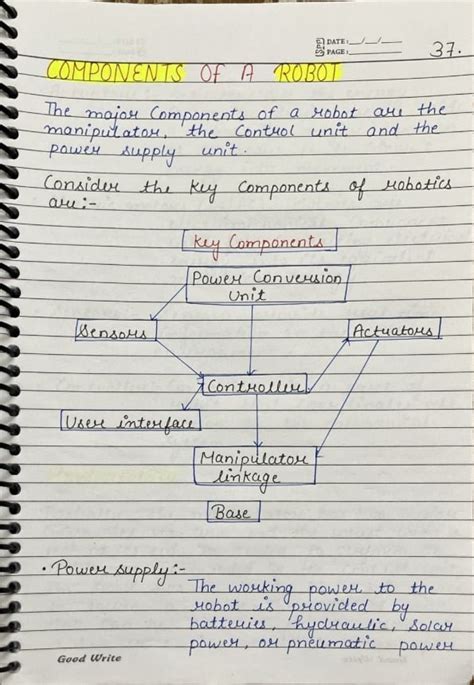 DATE: __/__/__
PAGE:
37.
COMPONENTS OF A ROBOT
The major Components of a robot are the
manipulator, the Control unit and the
power supply unit.
Consider the key Components of robotics
are:-
Key Components
Power Conversion
Unit
Sensors
Actuators
Controller
User interface
Manipulator
linkage
Base
• Power supply:-
The working power to the
robot is provided by
batteries, hydraulic, solar
power, or pneumatic power
Good Write